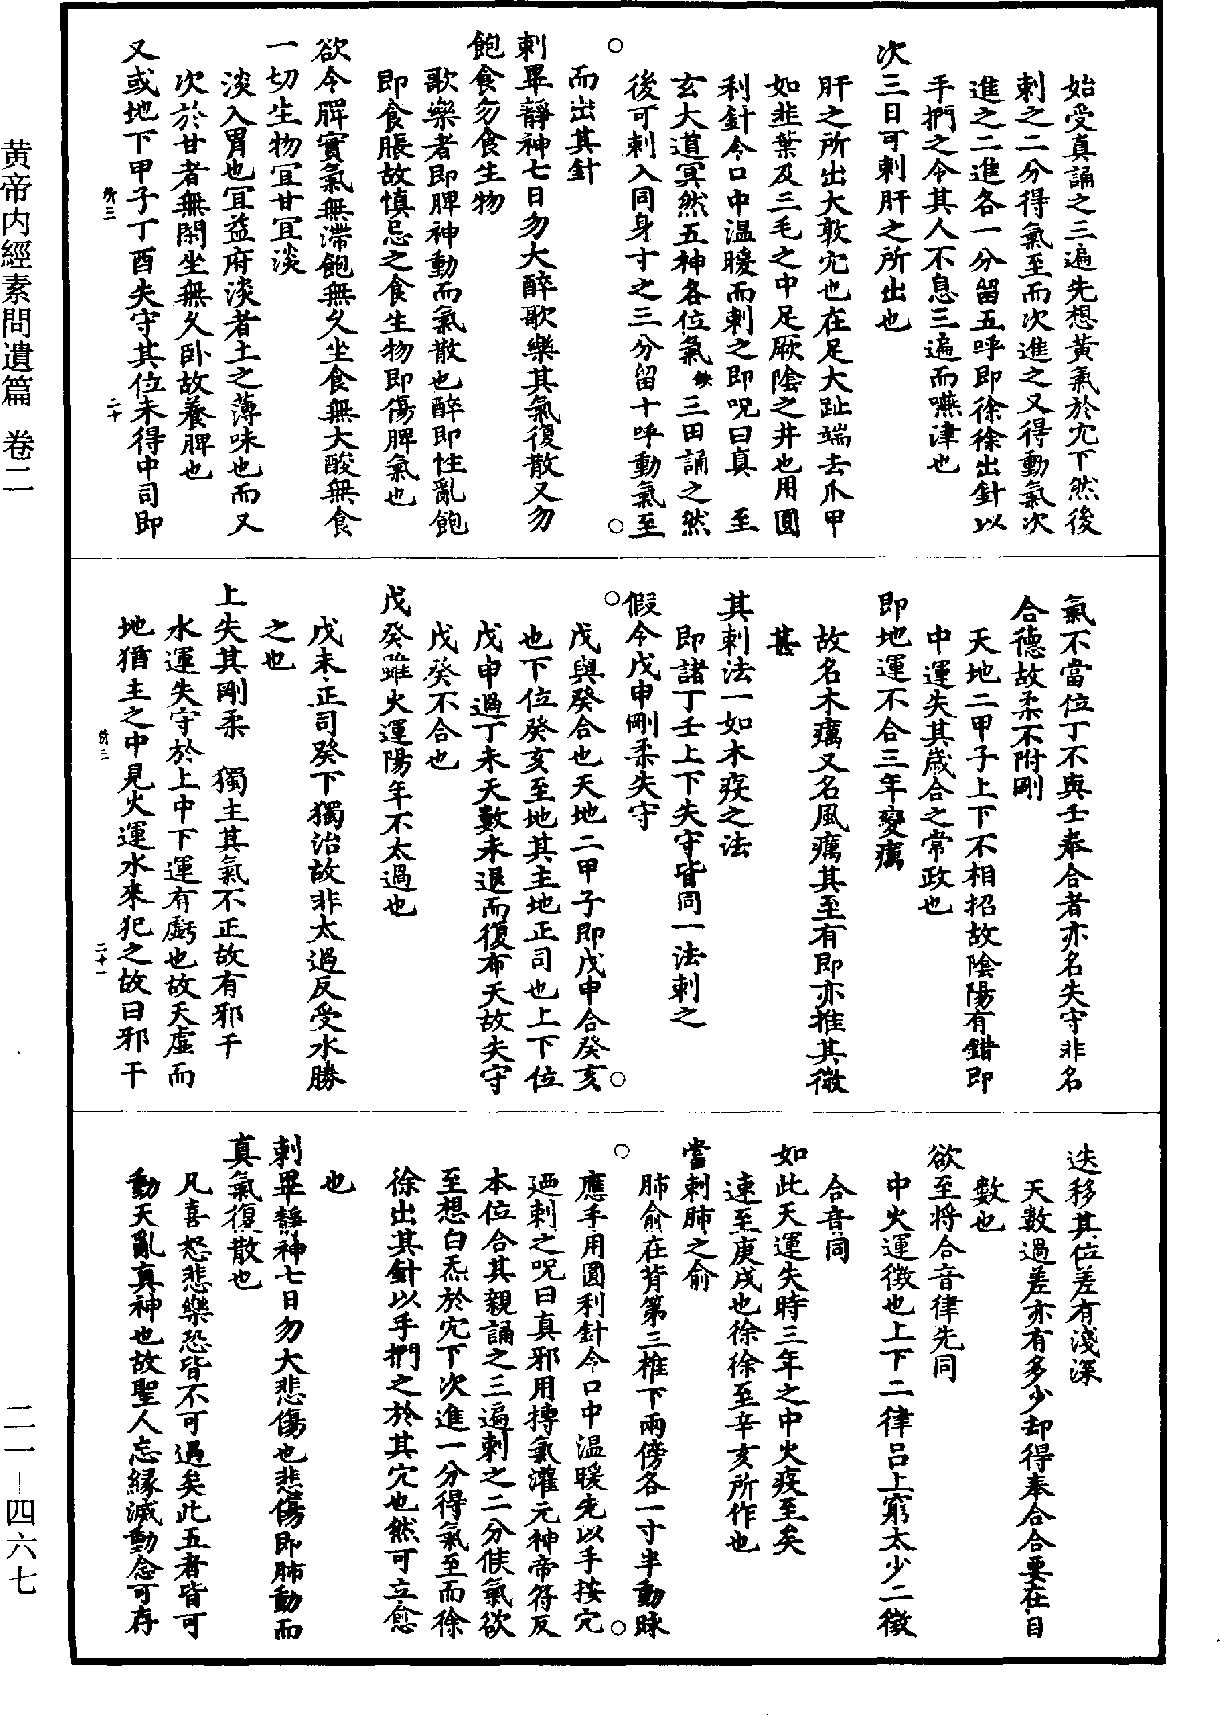 始受真誦之三遍先想黃氣於穴下然後
刺之二分得氣至而次進之又得動氣次
進之二進各一分留五呼即徐徐出針以
手捫之令其人不息三遍而嚥津也
次三日可刺肝之所出也
肝之所出大敦穴也在足大趾端去爪甲
如韭葉及三毛之中足厥陰之井也用圓
利針令口中温暖而刺之即呪曰真　至
玄大道冥然五神各位氣缺三田誦之然
後可刺入同身寸之三分留十呼動氣至
○　○
而出其針
刺畢靜神七日勿大醉歌樂其氣復散又勿
飽食勿食生物
歌樂者即脾神動而氣散也醉即性亂飽
即食脹故慎忌之食生物即傷脾氣也
欲令脾實氣無滯飽無久坐食無大酸無食
一切生物宜甘宜淡
淡入胃也宜益府淡者土之薄味也而又
次於甘者無閑坐無久卧故養脾也
又或地下甲子丁酉失守其位未得中司即
所三　二十
氣不當位丁不與壬奉合者亦名失守非名
合德故柔不附剛
天地二甲子上下不相招故陰陽有錯即
中運失其歲合之常政也
即地運不合三年變癘
故名木癘又名風癘其至有即亦推其微
甚
其刺法一如木疫之法
即諸丁壬上下失守皆同一法刺之
假令戊申剛柔失守
○　○
戊與癸合也天地二甲子即戊申合癸亥
也下位癸亥至地其主地正司也上下位
戊申過丁未天數未退而復布天故失守
戊癸不合也
戊癸雖火運陽年不太過也
戊未正司癸下獨治故非太過反受水勝
之也
上失其剛柔　獨主其氣不正故有邪干
水運失守於上中下運有虧也故天虛而
地猶主之中見火運水來犯之故曰邪干
所三　二十一
迭移其位差有淺深
天數過差亦有多少却得奉合合要在目
數也
欲至將合音律先同
中火運徵也上下二律呂上窮太少二徵
合音同
如此天運失時三年之中火疫至矣
速至庚戌也徐徐至辛亥所作也
當刺肺之俞
肺俞在背第三椎下兩傍各一寸半動脉
○　○
應手用圓利針令口中温暖先以手按穴
迺刺之呪曰真邪用搏氣灌元神帝符反
本位合其親誦之三遍刺之二分候氣欲
至想白炁於穴下次進一分得氣至而徐
徐出其針以手捫之於其穴也然可立愈
也
刺畢靜神七日勿大悲傷也悲傷即肺動而
真氣復散也
凡喜怒悲樂恐皆不可過矣此五者皆可
動天亂真神也故聖人忘緣滅動念可存
黃帝内經素問遺篇　卷二
二一—四六七